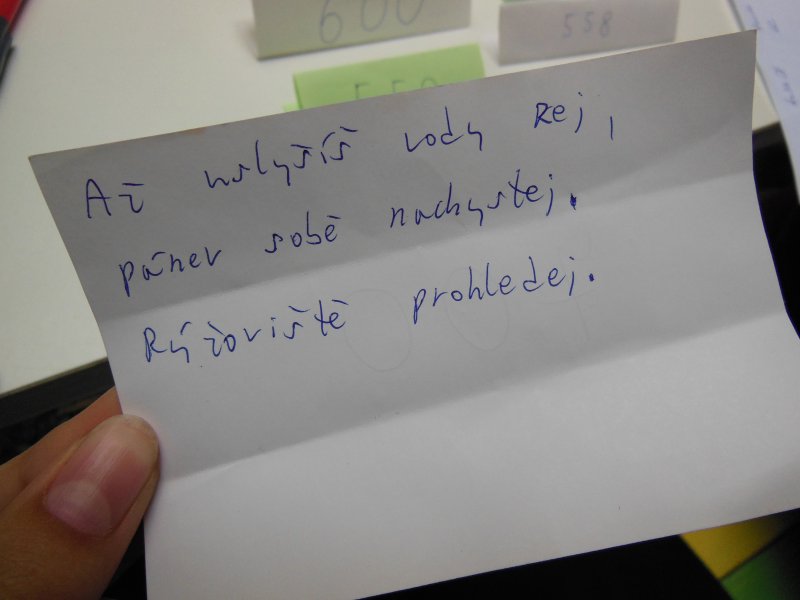 600
558
550
Až uslyšíš vody rej,
pánev sobě nachystej.
Rýžoviště prohledej.